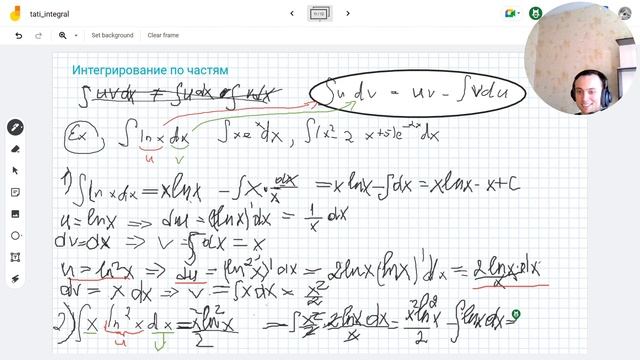 tati_integral
11 / 12
Set background
Clear frame
Интегрирование по частям
∫uvdx ≠ ∫udx · ∫vdx
∫u dv = uv - ∫vdu
Ex, ∫ln x dx, ∫xeˣdx,
u v
1) ∫ln x dx = x ln x - ∫x · dx/x = x ln x - ∫dx = x ln x - x + C
u = ln x => du = (ln x)' dx = 1/x dx
dv = dx => v = ∫dx = x
u = ln²x => du = (ln²x)' dx = 2 ln x (ln x)' dx = 2 ln x · dx / x
dv = x dx => v = ∫x dx = x²/2
2) ∫x ln²x dx = x² ln²x / 2 - ∫x²/2 · 2 ln x dx / x = x² ln²x / 2 -
u v